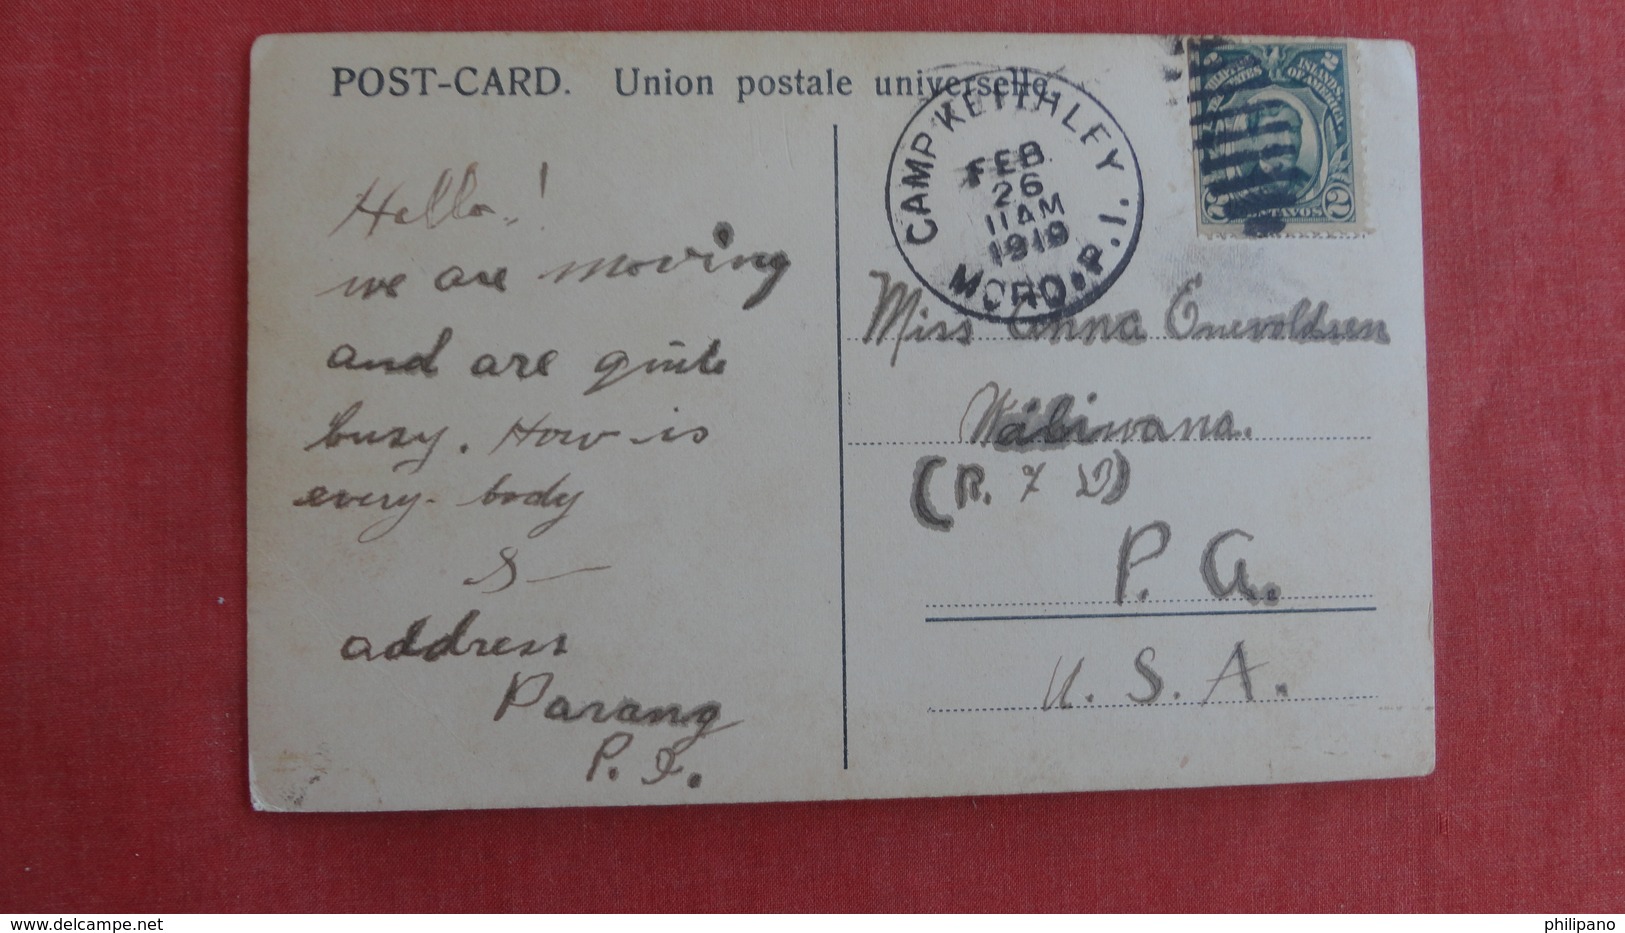 POST-CARD. Union postale universelle.
CAMP KEITHLEY
FEB.
26
11AM
1919
MORO. P. I.
ISLANDS
OF AMERICA.
2
2 CENTAVOS 2
Hello!
we are moving
and are quite
busy. How is
every-body
S—
address
Parang
P. I.
Miss Anna Enevoldsen
Wabiwana.
(R. 7 D)
P. A.
U. S. A.
philipano